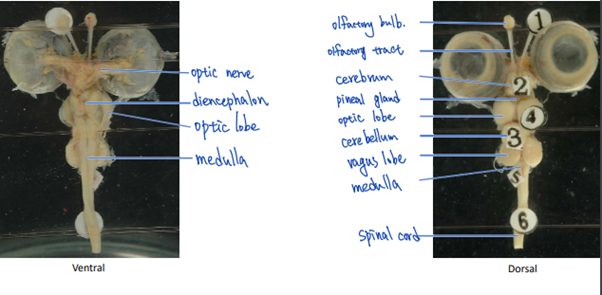 optic nerve
diencephalon
optic lobe
medulla
Ventral
olfactory bulb.
olfactory tract
cerebrum
pineal gland
optic lobe
cerebellum
vagus lobe
medulla
spinal cord
1
2
4
3
5
6
Dorsal